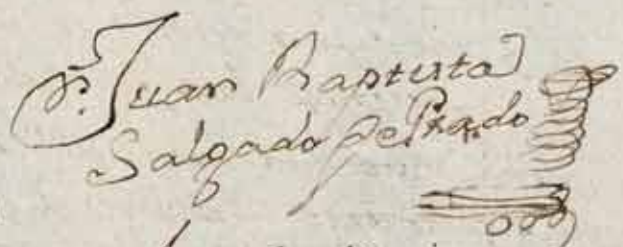 Dr. Juan Baptista
Salgado de Prado